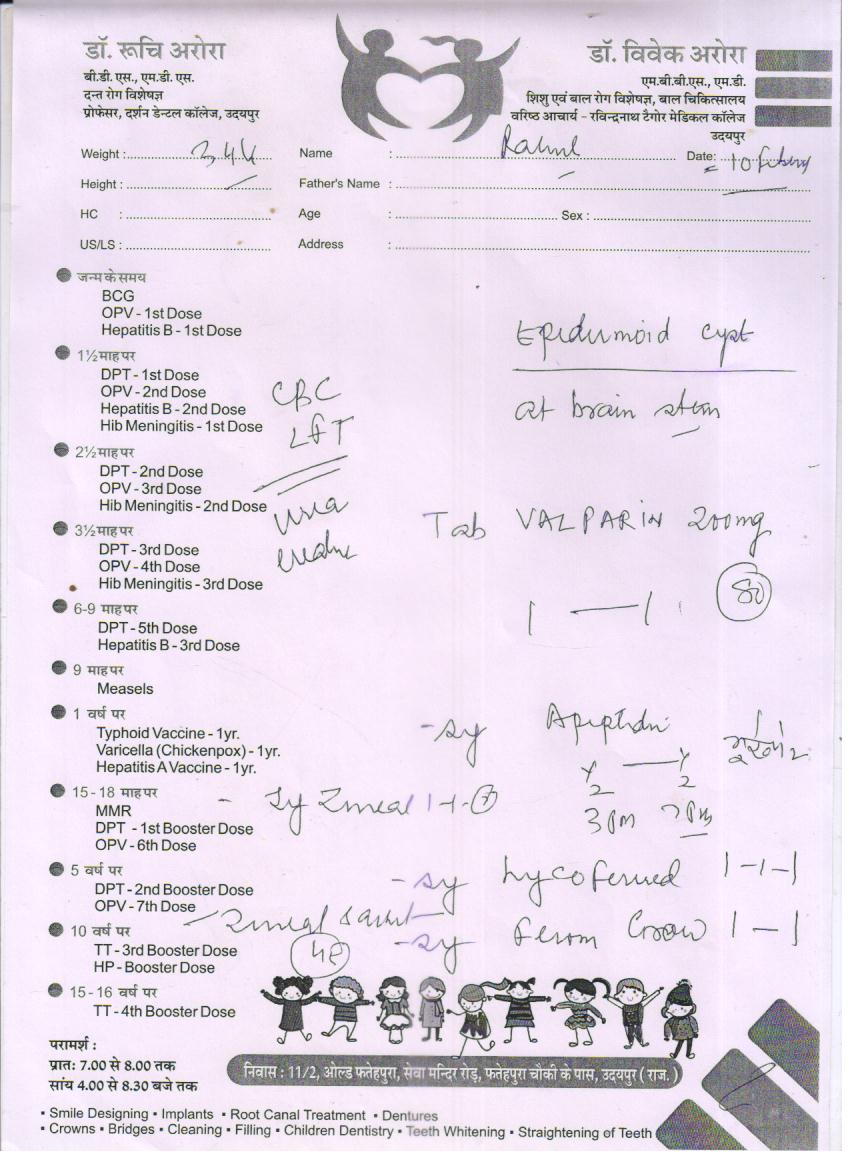 डॉ. रूचि अरोरा
बी.डी. एस., एम.डी. एस.
दन्त रोग विशेषज्ञ
प्रोफेसर, दर्शन डेन्टल कॉलेज, उदयपुर
डॉ. विवेक अरोरा
एम.बी.बी.एस., एम.डी.
शिशु एवं बाल रोग विशेषज्ञ, बाल चिकित्सालय
वरिष्ठ आचार्य - रविन्द्रनाथ टैगोर मेडिकल कॉलेज
उदयपुर
Weight : Name : Date:
Height : Father's Name :
HC : Age : Sex :
US/LS : Address :
जन्म के समय
BCG
OPV - 1st Dose
Hepatitis B - 1st Dose
Epidermoid cyst
1½ माह पर
DPT - 1st Dose
OPV - 2nd Dose
Hepatitis B - 2nd Dose
Hib Meningitis - 1st Dose
CBC
LFT
at brain stem
2½ माह पर
DPT - 2nd Dose
OPV - 3rd Dose
Hib Meningitis - 2nd Dose
Urea
Tab VALPARIN 200mg
3½ माह पर
DPT - 3rd Dose
OPV - 4th Dose
Hib Meningitis - 3rd Dose
1 — 1
6-9 माह पर
DPT - 5th Dose
Hepatitis B - 3rd Dose
9 माह पर
Measels
1 वर्ष पर
Typhoid Vaccine - 1yr.
Varicella (Chickenpox) - 1yr.
Hepatitis A Vaccine - 1yr.
- Sy
½ — ½
3 PM 7 PM
15 - 18 माह पर
MMR
DPT - 1st Booster Dose
OPV - 6th Dose
- Sy
5 वर्ष पर
DPT - 2nd Booster Dose
OPV - 7th Dose
- Sy 1 - 1 - 1
10 वर्ष पर
TT - 3rd Booster Dose
HP - Booster Dose
- Sy 1 — 1
15 - 16 वर्ष पर
TT - 4th Booster Dose
परामर्श :
प्रात: 7.00 से 8.00 तक
सांय 4.00 से 8.30 बजे तक
निवास : 11/2, ओल्ड फतेहपुरा, सेवा मन्दिर रोड़, फतेहपुरा चौकी के पास, उदयपुर ( राज. )
• Smile Designing • Implants • Root Canal Treatment • Dentures
• Crowns • Bridges • Cleaning • Filling • Children Dentistry • Teeth Whitening • Straightening of Teeth